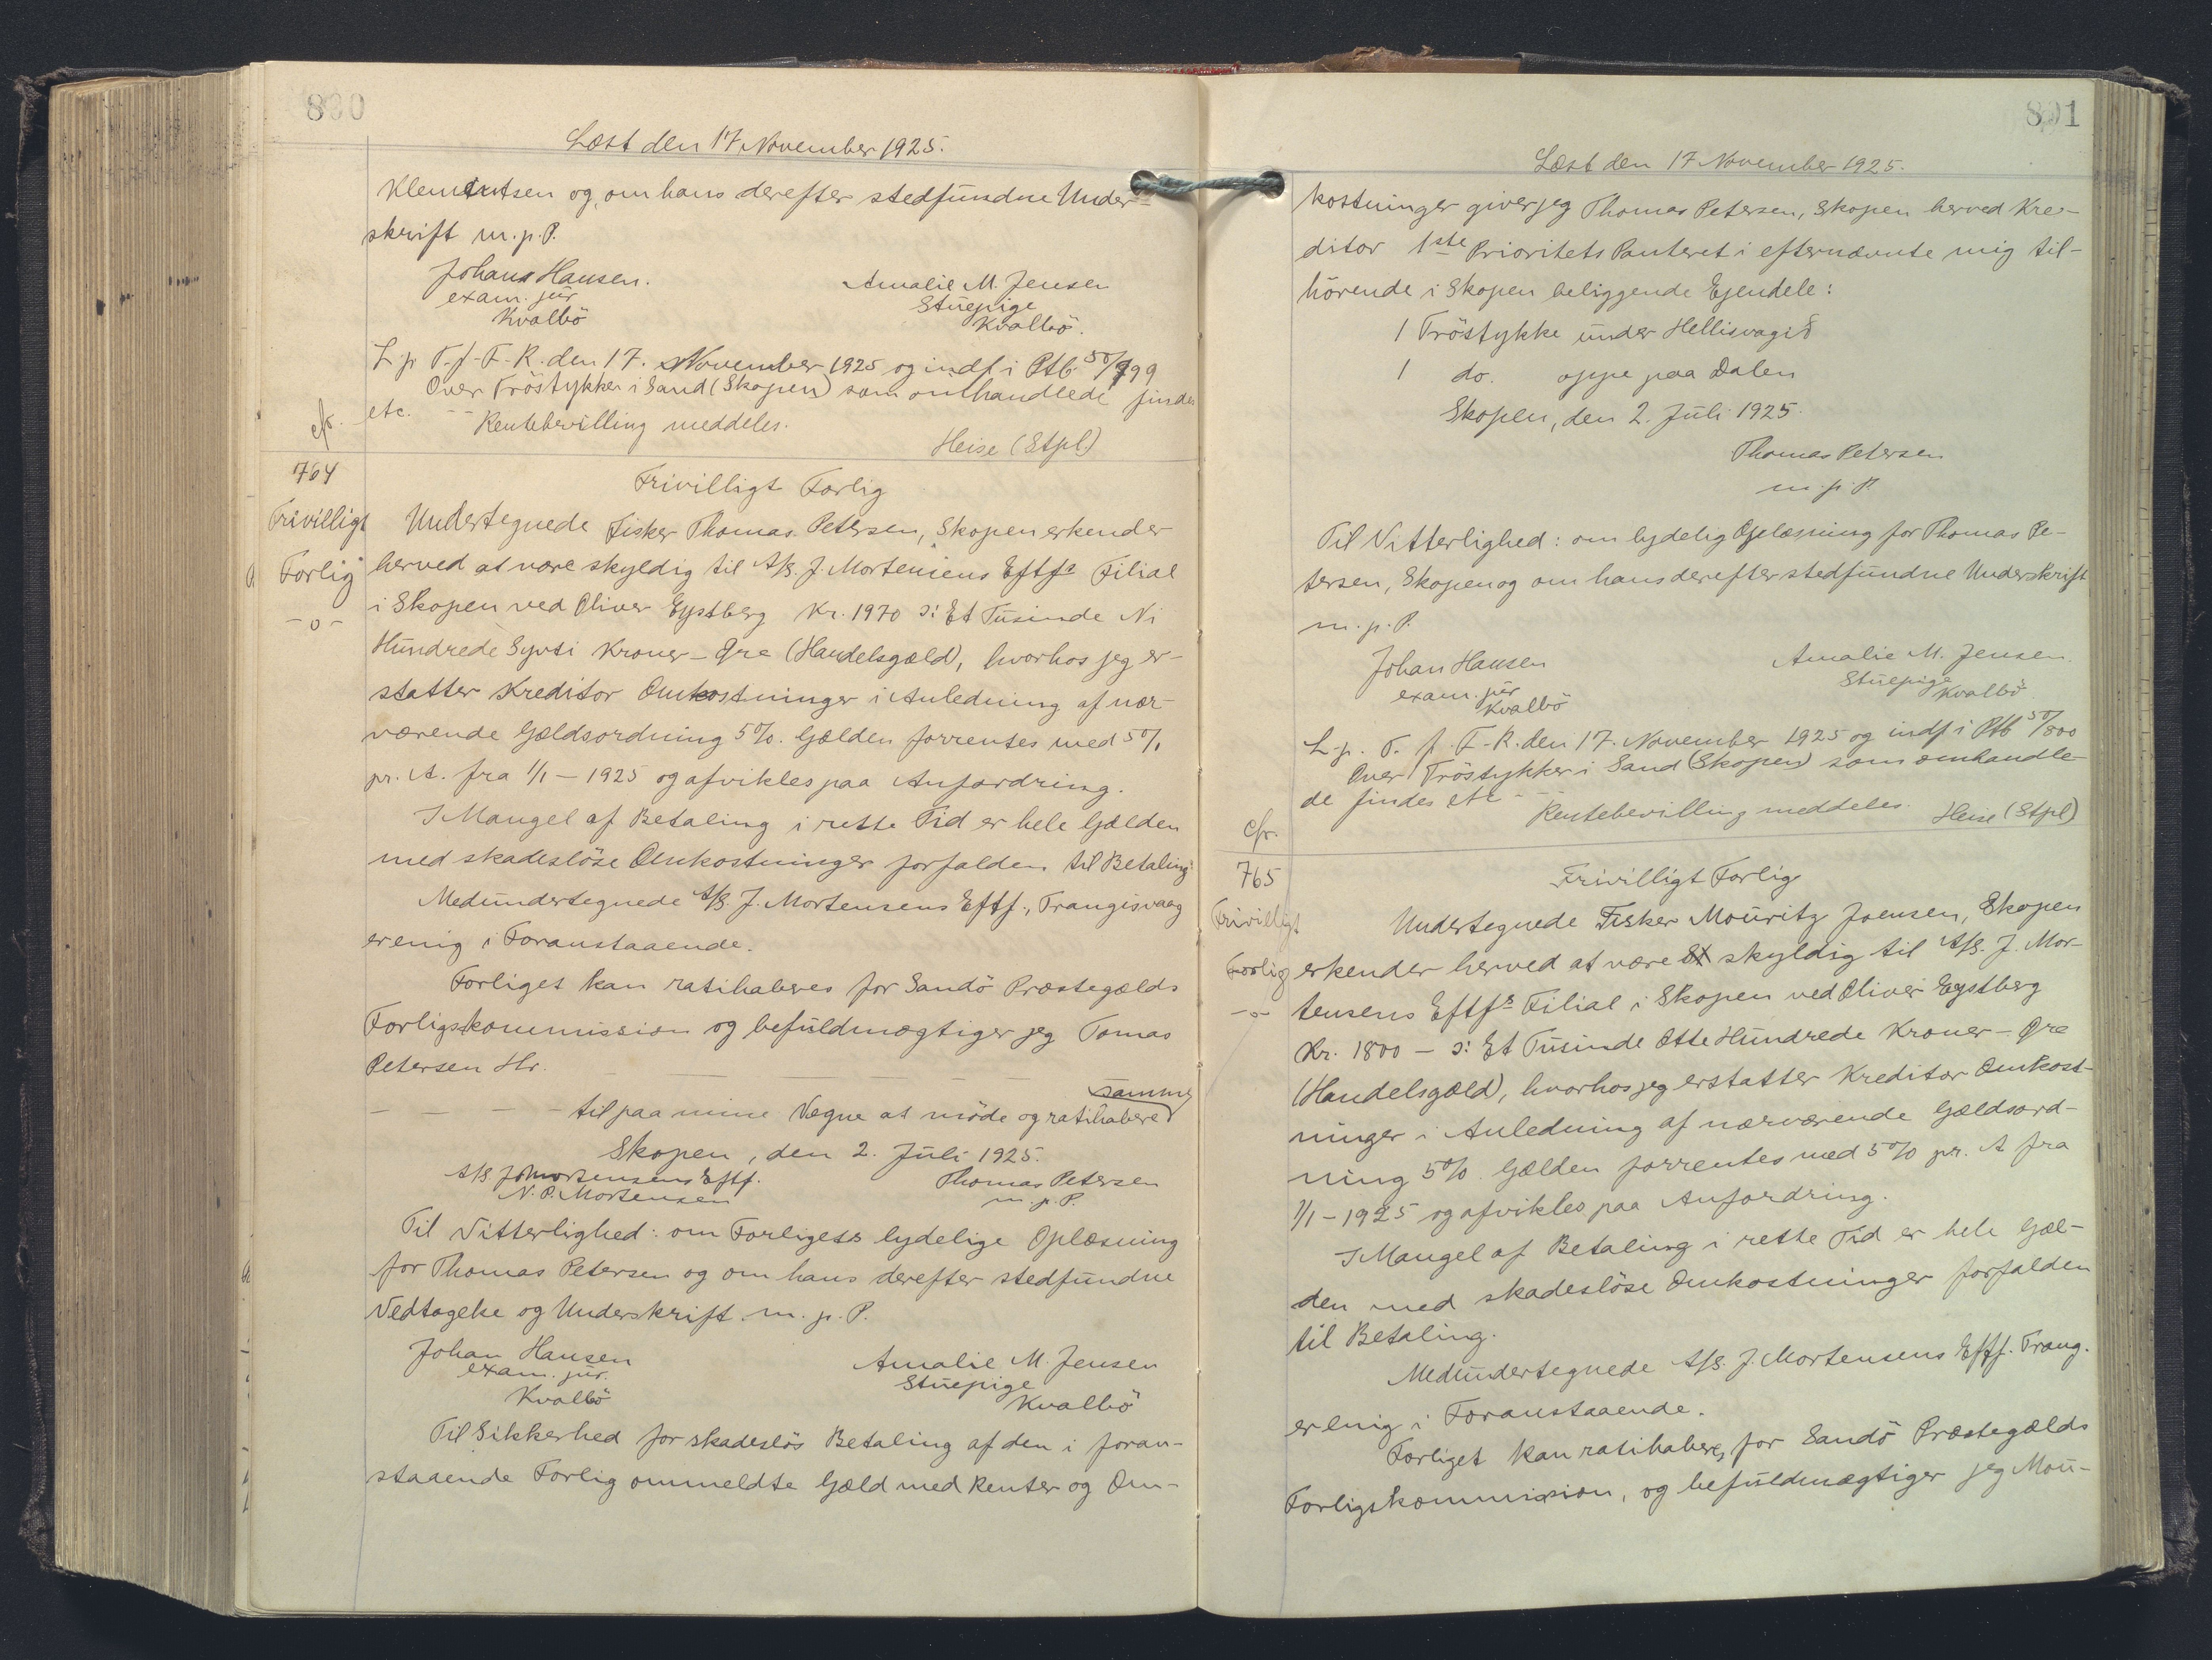 800
Læst den 17 November 1925.
Klementsen og, om hans derefter stedfundne Under-
skrift m.p.P.
Johans Hansen.
exam. jur
Kvalbö
Amalie M. Jensen
Stuepige
Kvalbö.
L.p T.f.F.R. den 17. November 1925 og indf i Ptb 50/799
Over Tröstykker i Sand (Skopen) som omhandlede findes
etc. -- Rentebevilling meddeles.
cfr.
Heise (Stpl)
764
Frivilligt
Forlig
-o-
Frivilligt Forlig
Undertegnede Fisker Thomas Petersen, Skopen erkender
herved at være skyldig til A/S. J. Mortensens Eftfs Filial
i Skopen ved Oliver Eystberg Kr. 1970 ɔ: Et Tusinde Ni
Hundrede Syvti Kroner – Øre (Handelsgæld), hvorhos jeg er-
statter Kreditor Omkostninger i Anledning af nær-
værende Gældsordning 5%. Gælden forrentes med 5%
pr. A. fra 1/1 – 1925 og afvikles paa Anfordring.
I Mangel af Betaling i rette Tid er hele Gælden
med skadeslöse Omkostninger forfalden til Betaling.
Medundertegnede A/S. J. Mortensens Eftf., Trangisvaag
er enig i Foranstaaende.
Forliget kan ratihaberes for Sandö Præstegælds
Forligskommission og befuldmægtiger jeg Tomas
Petersen Hr.
samme
- - - - til paa mine Vegne at möde og ratihabere
Skopen, den 2. Juli 1925.
A/S J. Mortensens Eftf.
N. P. Mortensen
Thomas Petersen
m.p.P.
Til Vitterlighed: om Forligets lydelige Oplæsning
for Thomas Petersen og om hans derefter stedfundne
Vedtagelse og Underskrift. m.p.P.
Johan Hansen
exam. jur.
Kvalbö
Amalie M. Jensen
Stuepige
Kvalbö
Til Sikkerhed for skadeslös Betaling af den i foran-
staaende Forlig ommeldte Gæld med Renter og Om-
801
Læst den 17 November 1925.
kostninger giver jeg Thomas Petersen, Skopen herved Kre-
ditor 1ste Prioritets Panteret i efternævnte mig til-
hörende i Skopen beliggende Ejendele:
1 Tröstykke under Hellisvagið
1 do. oppe paa Dalen
Skopen, den 2. Juli 1925.
Thomas Petersen
m.p.P.
Til Vitterlighed: om lydelig Oplæsning for Thomas Pe-
tersen, Skopen og om hans derefter stedfundne Underskrift
m.p.P.
Johan Hansen
exam. jur
Kvalbö
Amalie M. Jensen.
Stuepige
Kvalbö
L.p. T. f. F.R. den 17. November 1925 og indf i Ptb 50/800
Over Tröstykker i Sand (Skopen) som omhandle-
de findes etc -- Rentebevilling meddeles. Heise (Stpl)
Cfr.
765
Frivilligt
Forlig
-o-
Frivilligt Forlig
Undertegnede Fisker Mouritz Joensen, Skopen
erkender herved at være skyldig til A/S. J. Mor-
tensens Eftfs Filial i Skopen ved Oliver Eystberg
Kr. 1800 – ɔ: Et Tusinde Otte Hundrede Kroner – Øre
(Handelsgæld), hvorhos jeg erstatter Kreditor Omkost-
ninger i Anledning af nærværende Gældsord-
ning 5%. Gælden forrentes med 5% pr. A fra
1/1 – 1925 og afvikles paa Anfordring.
I Mangel af Betaling i rette Tid er hele Gæl-
den med skadeslöse Omkostninger forfalden
til Betaling.
Medundertegnede A/S. J. Mortensens Eftf. Trang.
er enig i Foranstaaende.
Forliget kan ratihaberes for Sandö Præstegælds
Forligskommission, og befuldmægtiger jeg Mou-